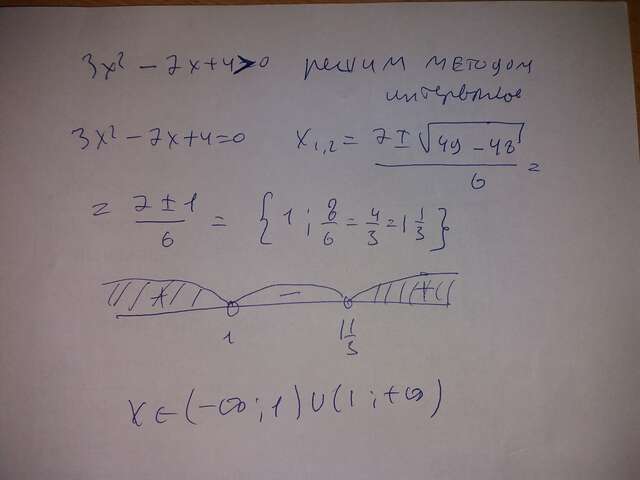 3x² - 7x+4>0 решим методом
интервалов
3x² - 7x+4=0 x₁,₂ = (7±√(49-48))/6 =
= (7±1)/6 = {1; 8/6 = 4/3 = 1 1/3}
+ - +
1 1 1/3
x∈(-∞;1)∪(1;+∞)